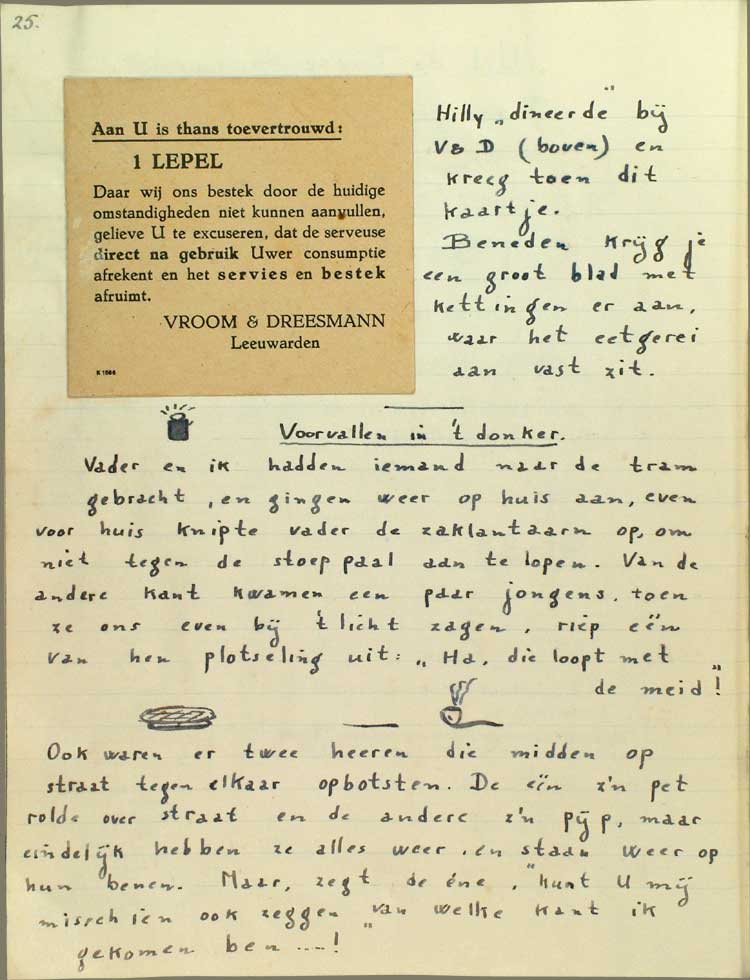 25.
Aan U is thans toevertrouwd:
1 LEPEL
Daar wij ons bestek door de huidige
omstandigheden niet kunnen aanvullen,
gelieve U te excuseren, dat de serveuse
direct na gebruik Uwer consumptie
afrekent en het servies en bestek
afruimt.
VROOM & DREESMANN
Leeuwarden
K 1566
Hilly „dineerde" bij
V & D (boven) en
kreeg toen dit
kaartje.
Beneden krijg je
een groot blad met
kettingen er aan,
waar het eetgerei
aan vast zit.
Voorvallen in 't donker.
Vader en ik hadden iemand naar de tram
gebracht, en gingen weer op huis aan, even
voor huis knipte vader de zaklantaarn op, om
niet tegen de stoep paal aan te lopen. Van de
andere kant kwamen een paar jongens. toen
ze ons even bij 't licht zagen, riep eën
van hen plotseling uit: „Ha, die loopt met
de meid"!
Ook waren er twee heeren die midden op
straat tegen elkaar opbotsten. De eën z'n pet
rolde over straat en de andere z'n pijp, maar
eindelijk hebben ze alles weer, en staan weer op
hun benen. Maar, zegt de éne, "kunt U mij
misschien ook zeggen „van welke kant ik
gekomen ben ....!